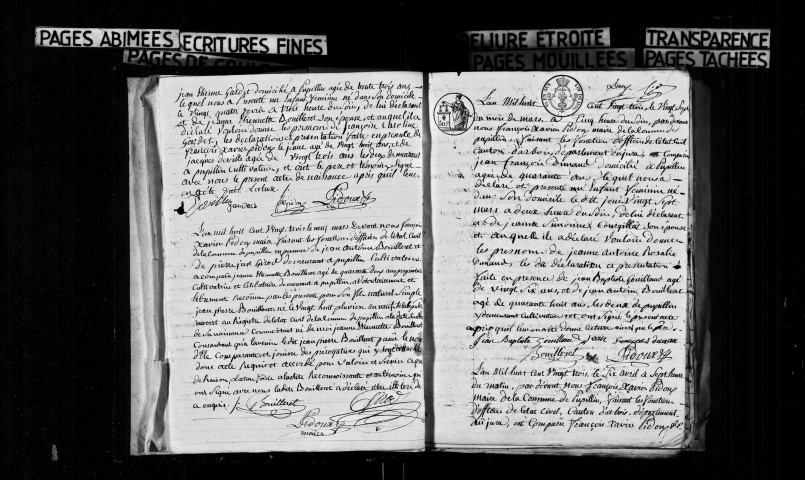 PAGES ABIMEES
ECRITURES FINES
RELIURE ÉTROITE
TRANSPARENCE
PAGES DE COULEUR
PAGES MOUILLÉES
PAGES TACHÉES
jean Etienne Gardet domicilié à pupillin agé de trente trois ans
lequel nous a présenté un Enfant feminin né dans Son domicile
le Vingt quatre à Trois heure du Soir, de lui déclarant
et de jeanne Pierrette Bouilleret Son épouse, et auquel il a
déclaré Vouloir donner les prenoms de françoise Caroline
Gardet, les déclaration et presentation faite en presence de
françois xavier pidoux agé de Vingt huit ans, et de
jacques deville agé de Vingt trois ans les deux demeurant
à pupillin Cultivateur, et ont le pere et temoins Signé
avec nous le present acte de naissance après qu'il leur
en a été fait Lecture
Pidoux
L'an mil huit cent Vingt trois le mars Devant nous françois
Xavier Pidoux maire faisant les fonctions d'officier de l'état Civil
de la Commune de pupillin en presence de jean antoine Bouilleret et
de pierre demeurant à pupillin Cultivateurs
a comparu jeanne Pierrette Bouilleret agé de quarante deux ans
Cultivatrice et Célibataire demeurant à pupillin, a Volontairement et
librement Reconnu par les presentes pour Son fils naturel Simple
jean pierre Bouilleret né le Vingt huit pluviose
inscrit au Registre de l'état Civil de la Commune de pupillin
de Sa naissance comme étant né de moi jeanne Pierrette Bouilleret
Consentant qu'à l'avenir le dit jean pierre Bouilleret porte le nom
d'Elle Comparante et jouisse des prérogatives qui y sont attachés
dont acte Requis et accordé pour Valoir et Servir ce que
de Raison, Lecture faite à la dite Reconnaissante et aux temoins qui
ont Signé avec nous la dite Bouilleret a déclaré être illettrée de
ce enquis
Bouilleret
Pidoux
maire
L'an Mil huit Cent Vingt trois, le Vingt Sept
du mois de mars, à Cinq heure du Soir, par devant
nous françois Xavier Pidoux, maire de la Commune de
pupillin, faisant les fonction d'officier de l'état Civil
Canton d'arbois, département du jura, est Comparu
jean françois Dumand domicilié à pupillin
agé de quarante ans, lequel nous a
déclaré et présenté un Enfant feminin né
dans Son domicile le dit jour Vingt Sept
mars à deux heure du Soir, de lui déclarant
et de jeanne Simonne Courgillet Son épouse
et auquel il a déclaré Vouloir donner
les prenom de jeanne antoine Rosalie
Dumand, les dite déclaration et presentation
faite en presence de jean Baptiste Gouilland agé
de Vingt Six ans, et de jean antoine Bouilleret
agé de quarante huit ans, les deux de pupillin
y demeurant Cultivateur et ont Signé le present acte
après qu'il leur en a été donné lecture ainsi que le pere
jean Baptiste Gouilland
Bouilleret Pidoux
L'an Mil huit Cent Vingt trois le Six avril à Sept heure
du matin, par devant nous françois Xavier Pidoux
Maire de la Commune de Pupillin, faisant les fonction
d'officier de l'état civil, Canton d'arbois, département
du jura, est Comparu François Xavier Pidoux